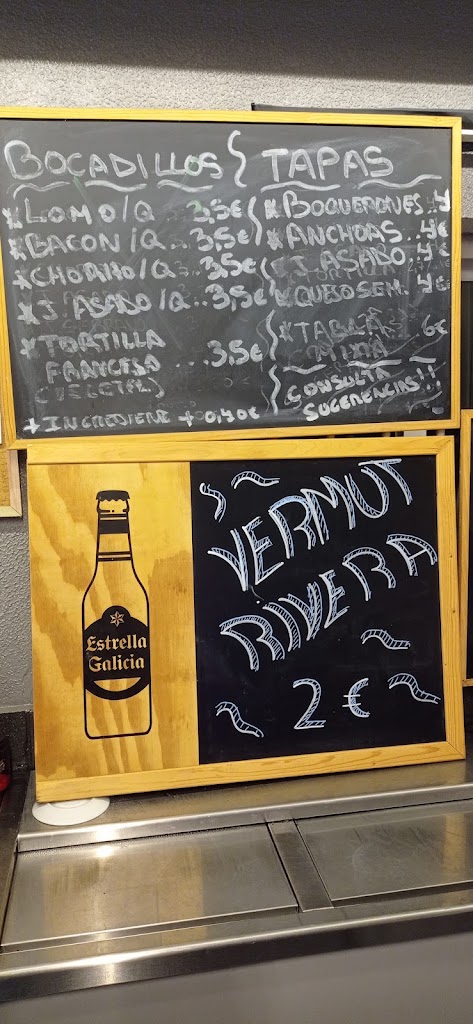 BOCADILLOS
*LOMO/Q...3,5€
*BACON/Q...3,5€
*CHORIZO/Q...3,5€
*J. ASADO/Q...3,5€
*TORTILLA
FRANCESA...3,5€
(VEGETAL)
+INGREDIENE +0,40€
TAPAS
*BOQUERONES..4
*ANCHOAS..4€
*J. ASADO..4€
*QUESO SEM..4€
*TABLA 6€
MIXTA
CONSULTA
SUGERENCIAS!!
Estrella
Galicia
VERMUT
RIVERA
2 €